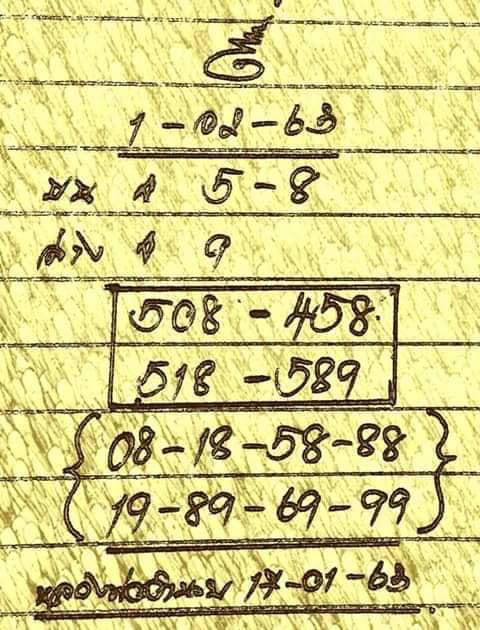 1 - 02 - 63
บน ที่ 5 - 8
ล่าง ที่ 9
508 - 458
518 - 589
08 - 18 - 58 - 88
19 - 89 - 69 - 99
17 - 01 - 63